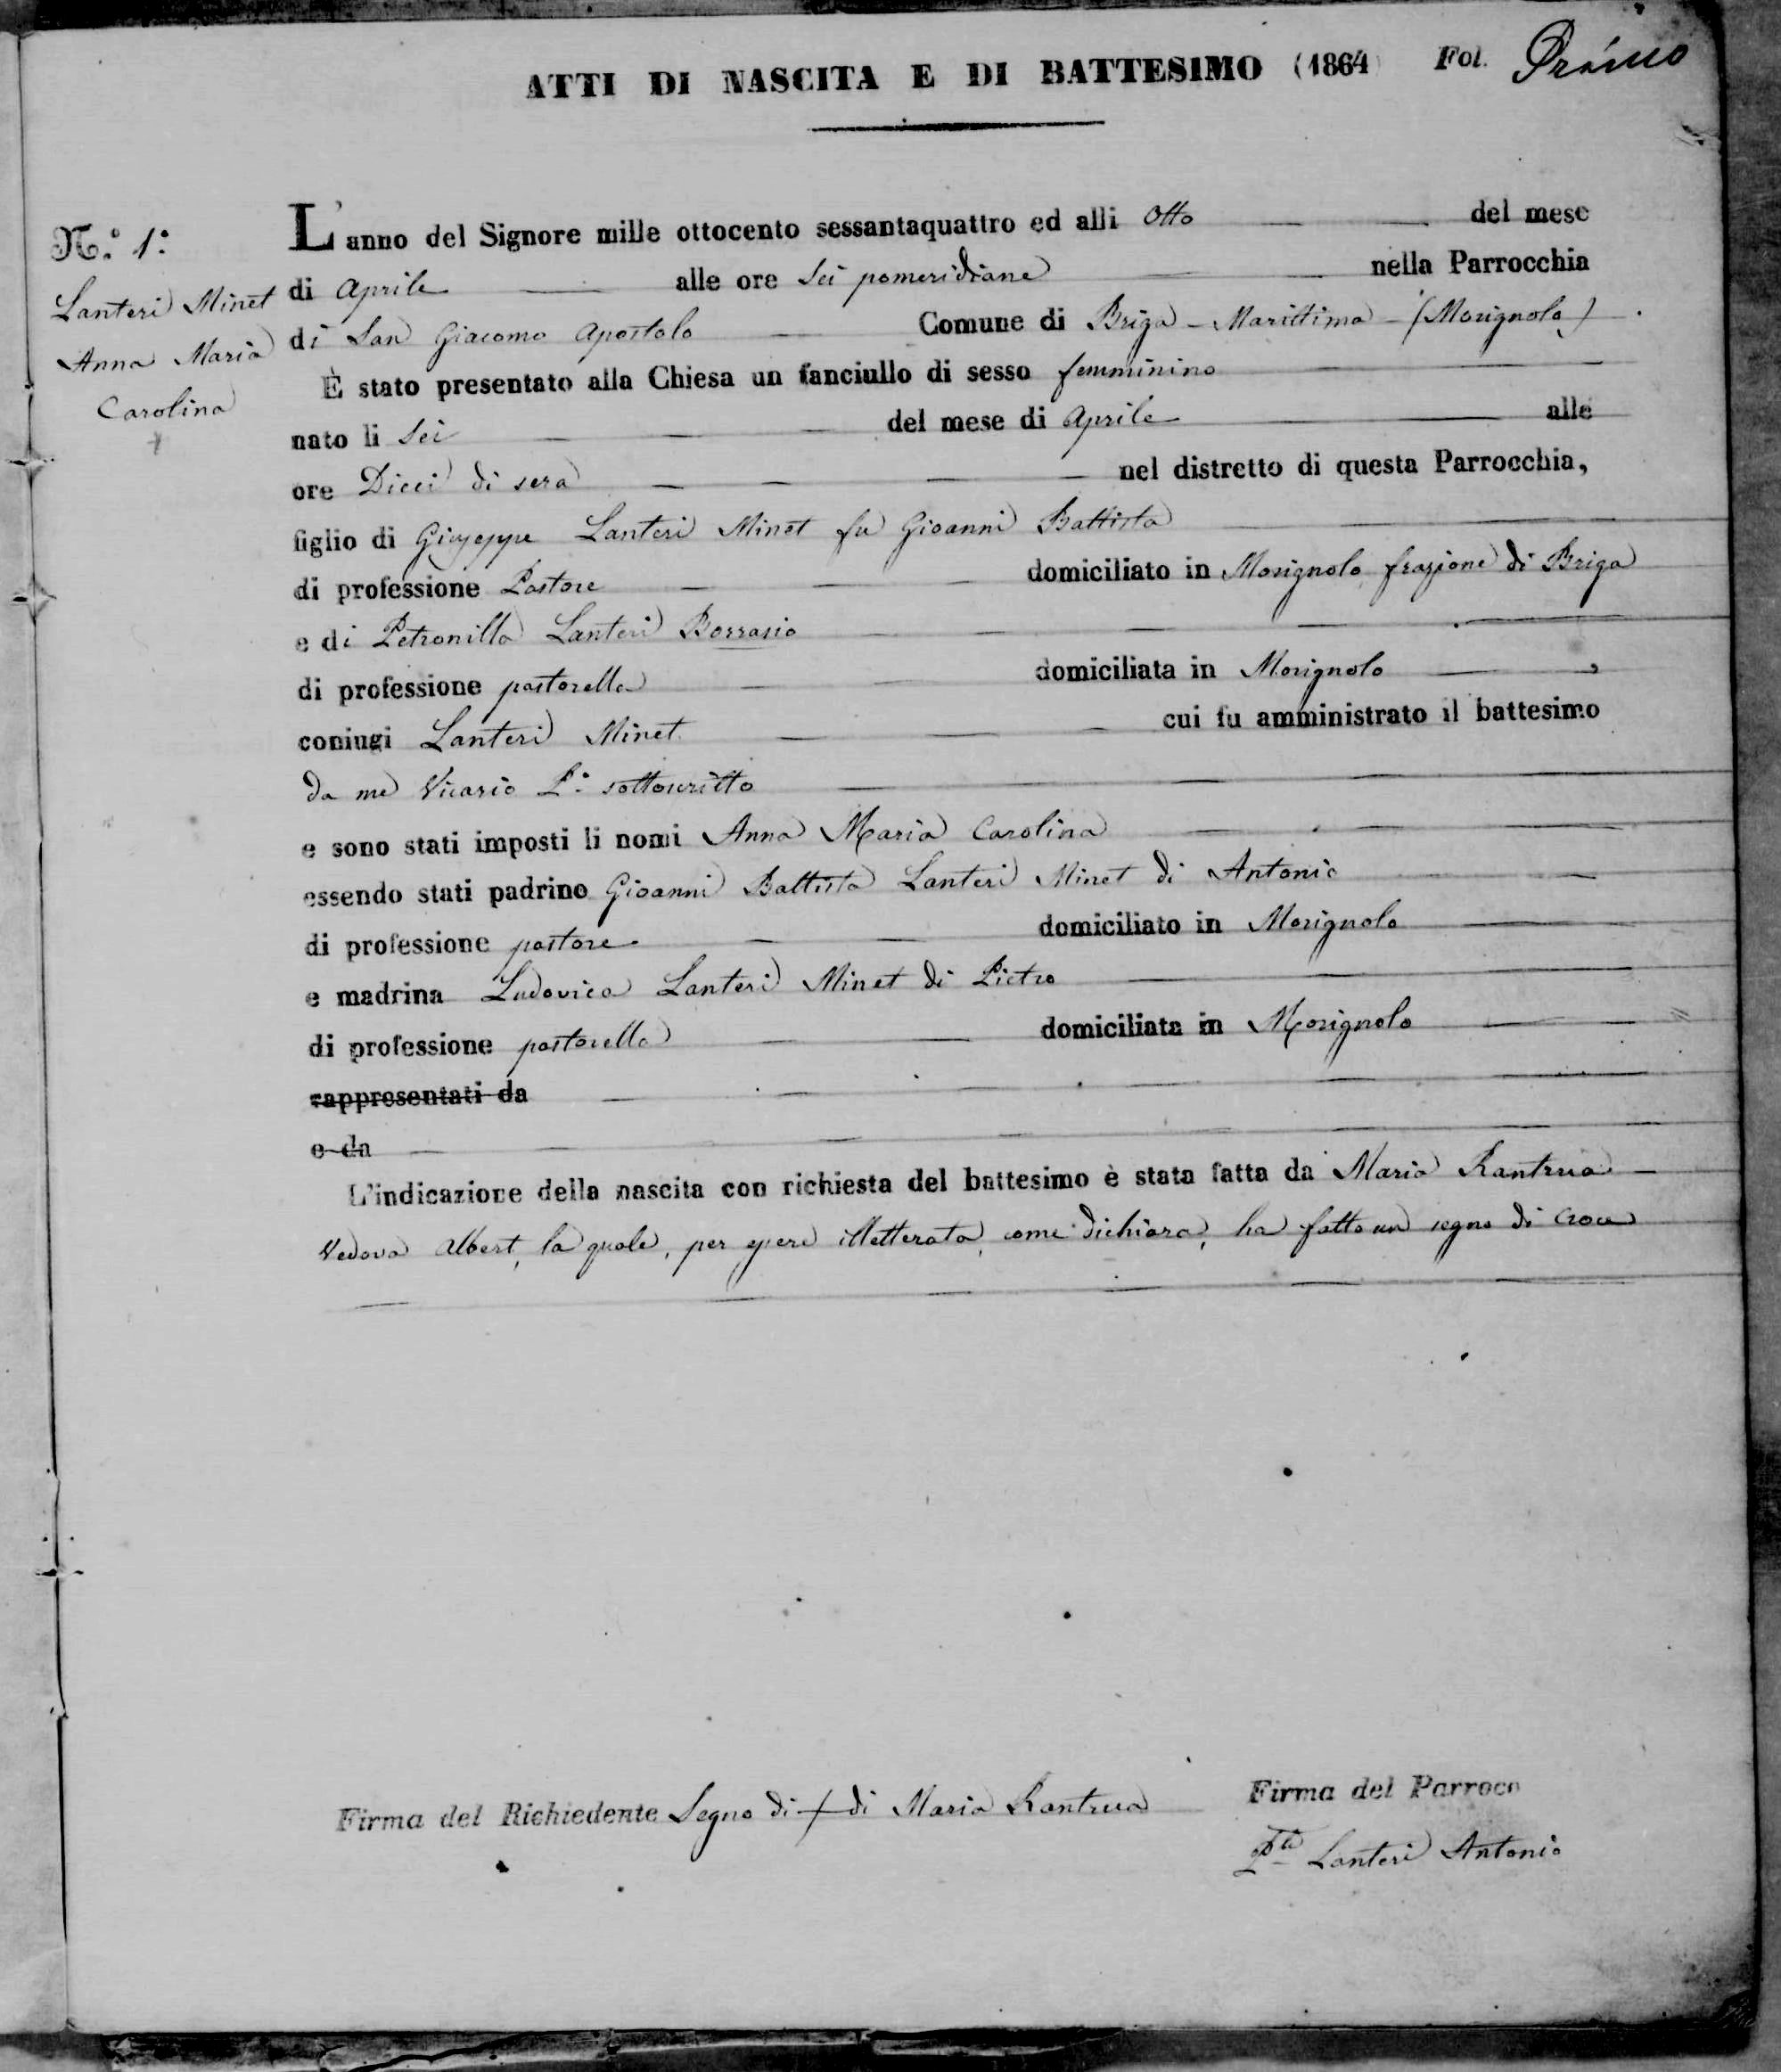 ATTI DI NASCITA E DI BATTESIMO (1864) Fol. Primo
N.° 1.°
Lanteri Minet
Anna Maria
Carolina
L'anno del Signore mille ottocento sessantaquattro ed alli Otto del mese
di Aprile alle ore Sei pomeridiane nella Parrocchia
di San Giacomo Apostolo Comune di Briga - Marittima - (Morignolo)
È stato presentato alla Chiesa un fanciullo di sesso femminino
nato li Sei del mese di Aprile alle
ore Dieci di sera nel distretto di questa Parrocchia,
figlio di Giuseppe Lanteri Minet fu Gioanni Battista
di professione Pastore domiciliato in Morignolo frazione di Briga
e di Petronilla Lanteri Borrasio
di professione pastorella domiciliata in Morignolo,
coniugi Lanteri Minet cui fu amministrato il battesimo
da me Vicario P. sottoscritto
e sono stati imposti li nomi Anna Maria Carolina
essendo stati padrino Gioanni Battista Lanteri Minet di Antonio
di professione pastore domiciliato in Morignolo
e madrina Ludovica Lanteri Minet di Pietro
di professione pastorella domiciliata in Morignolo
rappresentati da
e da
L'indicazione della nascita con richiesta del battesimo è stata fatta da Maria Rantrua
Vedova Albert, la quale, per essere illetterata, come dichiara, ha fatto un segno di Croce
Firma del Richiedente Segno di + di Maria Rantrua
Firma del Parroco
Lanteri Antonio